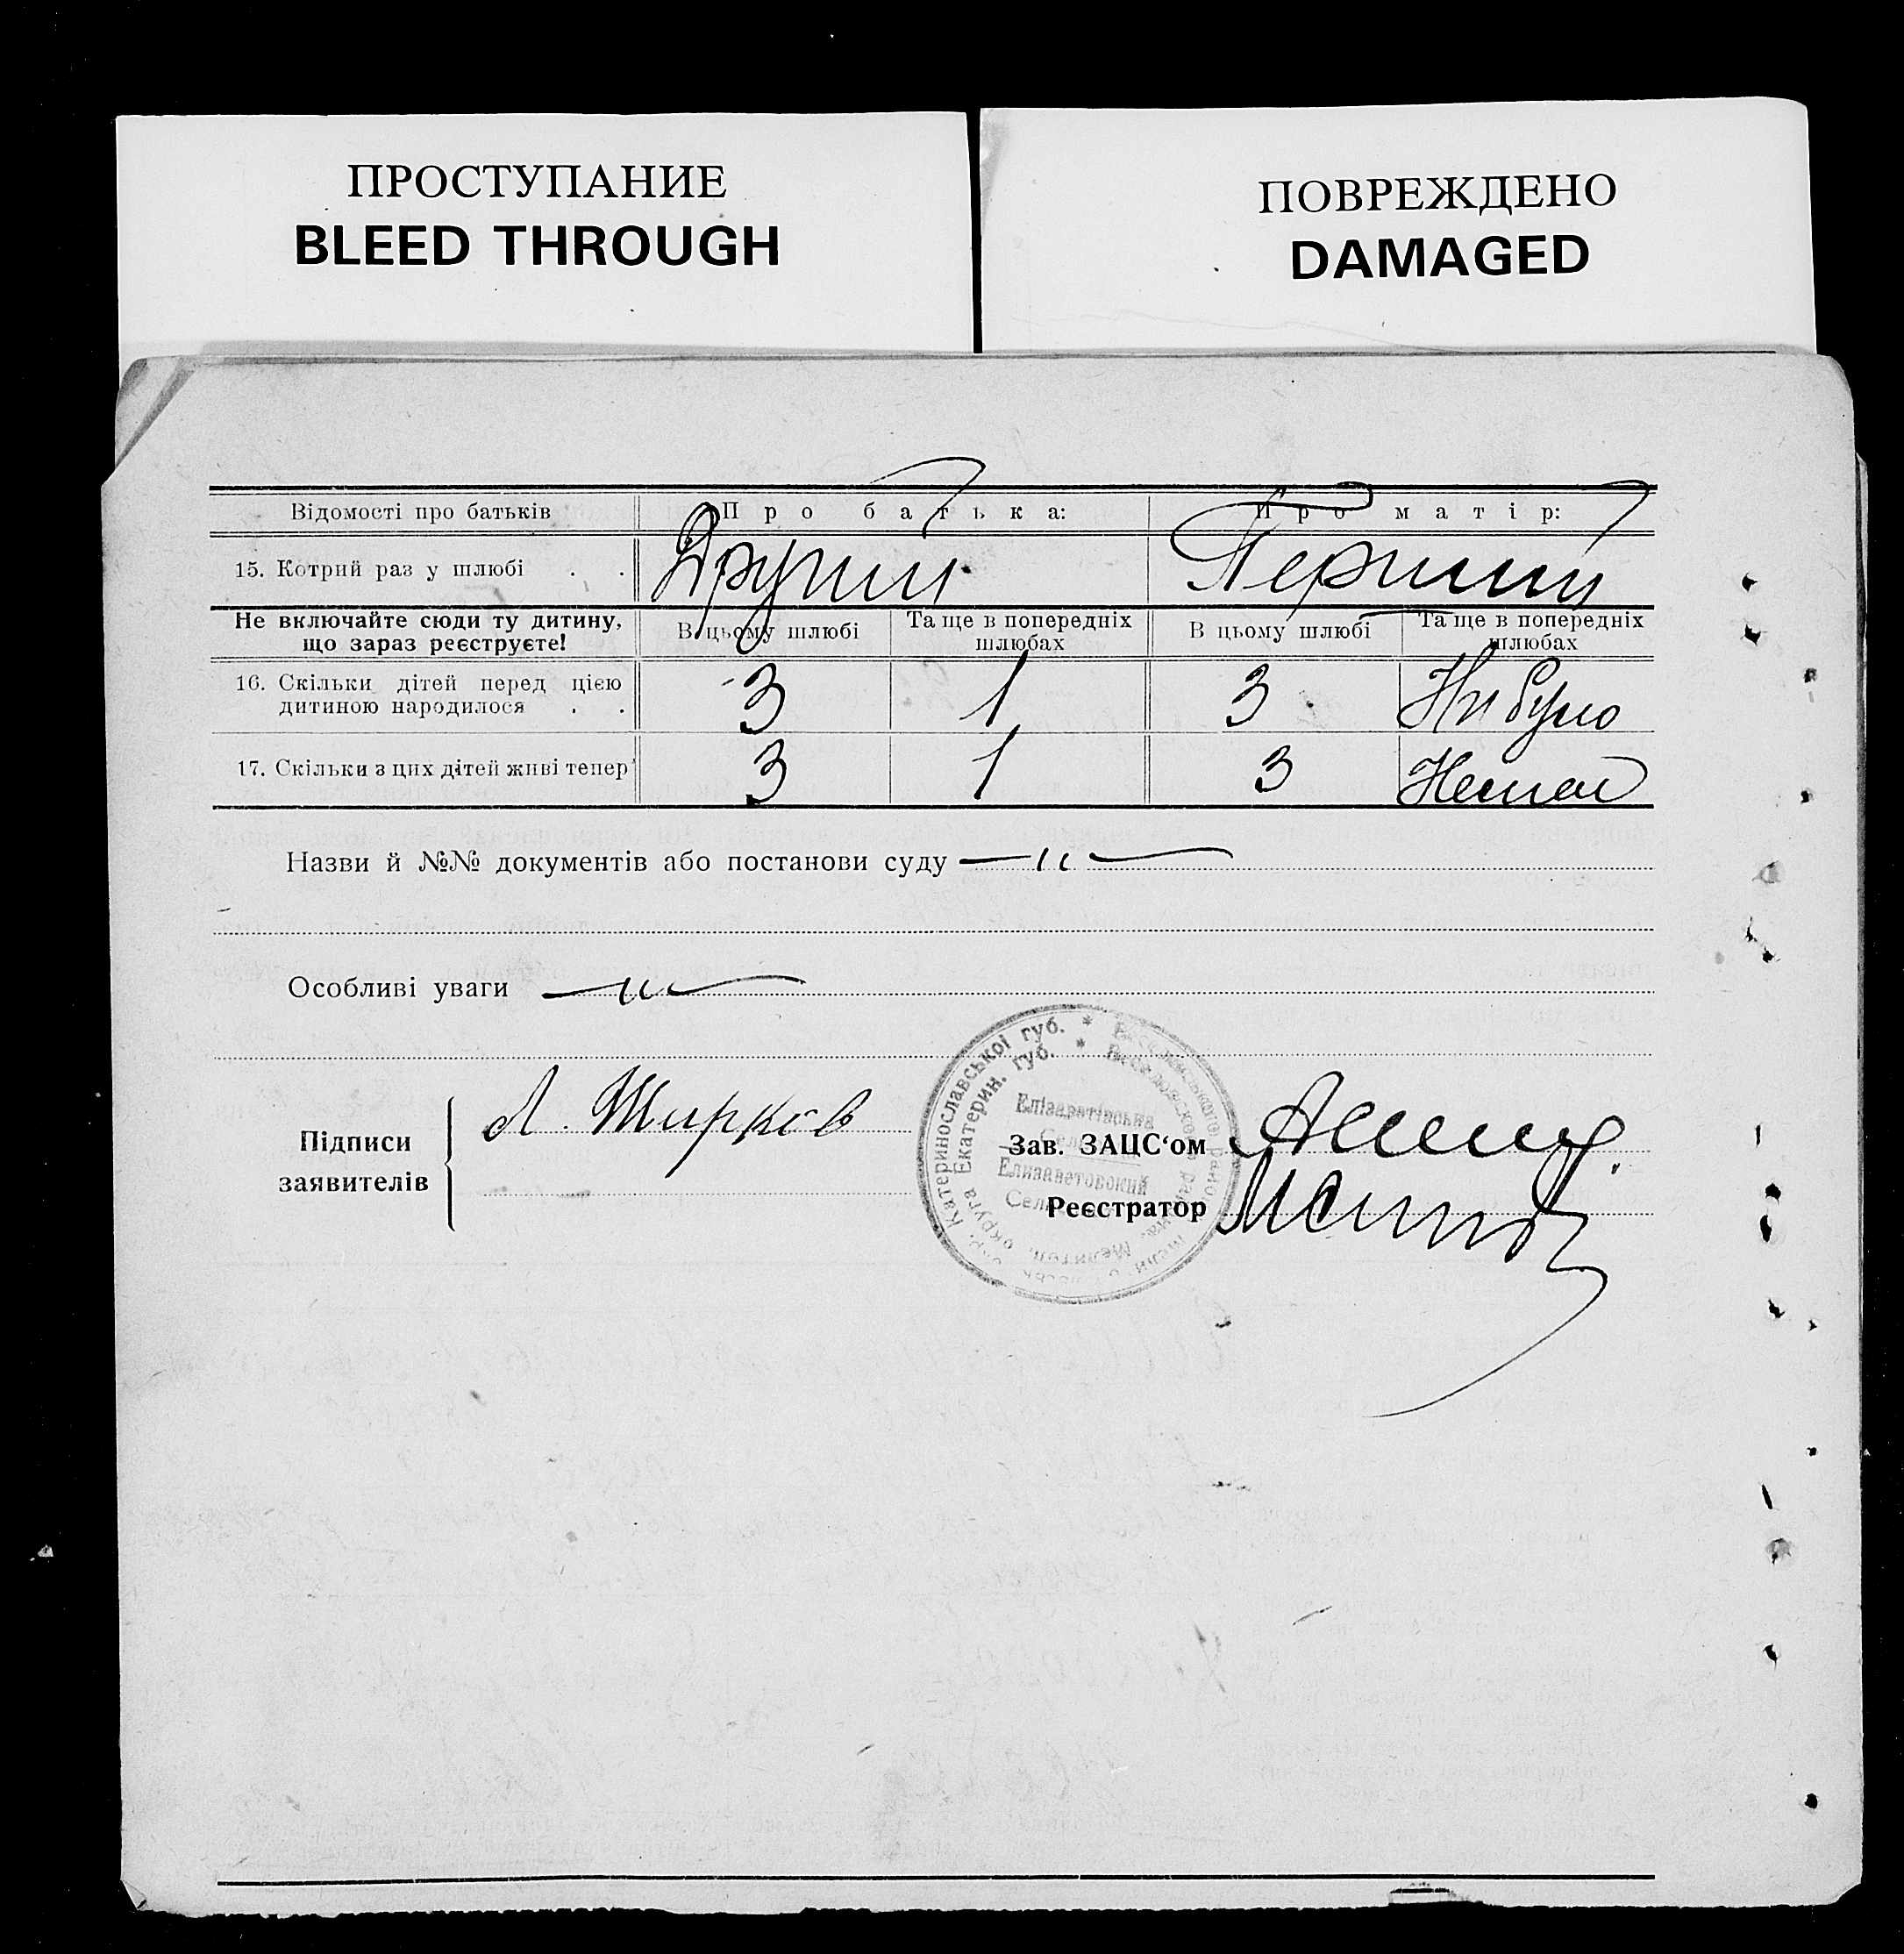 ПРОСТУПАНИЕ
BLEED THROUGH
ПОВРЕЖДЕНО
DAMAGED
Відомості про батьків Про батька: Про матір:
15. Котрий раз у шлюбі . . Другий Перший
Не включайте сюди ту дитину, що зараз реєструєте! В цьому шлюбі Та ще в попередніх шлюбах В цьому шлюбі Та ще в попередніх шлюбах
16. Скільки дітей перед цією 3 1 3 Ни було
дитиною народилося . .
17. Скільки з цих дітей живі тепер 3 1 3 Немає
Назви й №№ документів або постанови суду — „ —
Особливі уваги — „ —
Підписи
заявителів
Л. Жирков
Катеринославської губ. *
Екатерин. губ. *
Елізаветівська
Зав. ЗАЦС‘ом
Елизаветовский
Реєстратор
округа
Мелитоп.